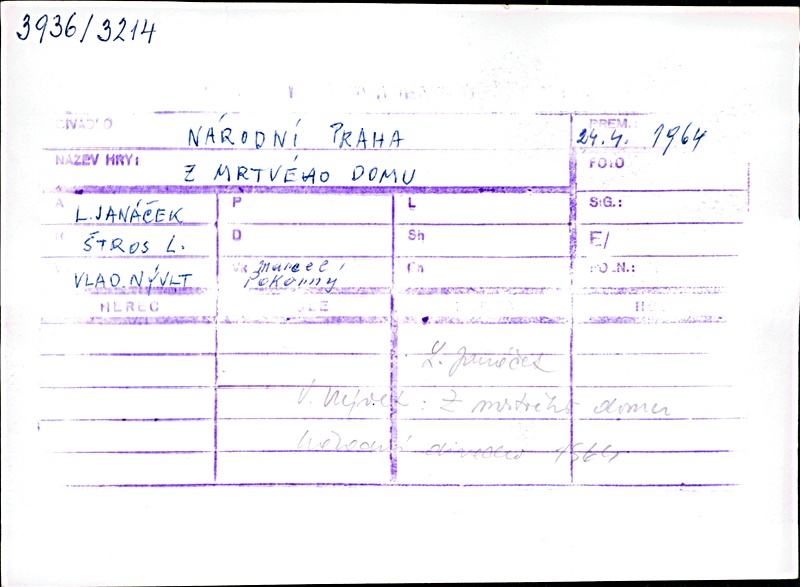 3936/3214
DIVADLO NÁRODNÍ PRAHA PREM.: 24.4. 1964
NÁZEV HRY: Z MRTVÉHO DOMU FOTO
A L. JANÁČEK P L SIG.:
R ŠTROS L. D Sh E/
VLAD. NÝVLT Marcel Pokorný
HEREC
L. Janáček
V. Nývlt: Z mrtvého domu
Národní divadlo 1964